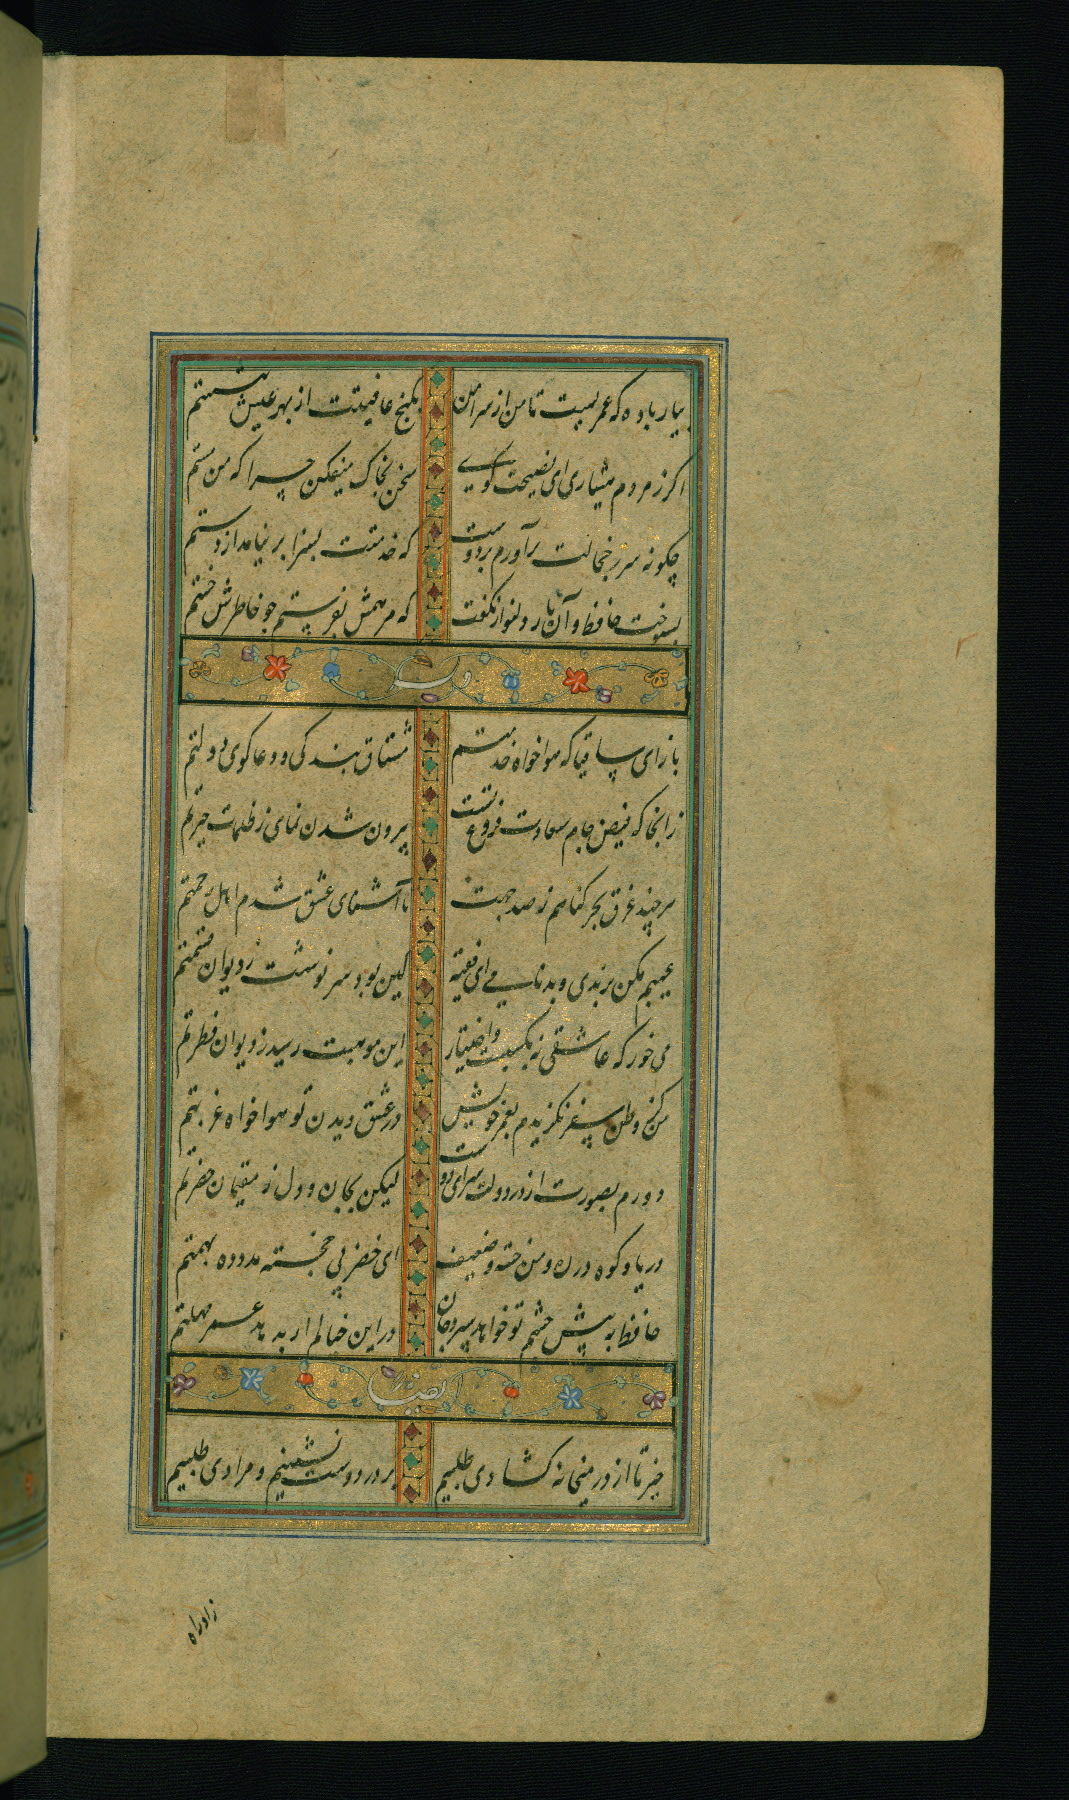 بیار باده که عمریست تا من از سر امن
بکنج عافیتت از بهر عیش ننشستم
اکر ز مردم هشیاری ای نصیحت کوی
سخن بخاک میفکن چرا که من مستم
چکونه سر ز خجالت برآورم بر دوست
که خدمتت بسزا بر نیامد از دستم
بسوخت حافظ و آن یار دلنواز نکفت
که مرهمش بفرستم جو خاطرش خستم
باز ای ساقیا که هواخواه خدمتم
مشتاق بندکی و دعا کوی دولتم
زانجا که فیض جام سعادت فروغ تست
بیرون شدن نمای ز ظلمات حیرتم
هر چند غرق بحر کناهم ز صد جهت
تا آشنای عشق شدم اهل رحمتم
عیبم مکن برندی و بدنامی ای فقیه
کین بود سرنوشت ز دیوان قسمتم
می خور که عاشقی نه بکسبست و اختیار
این موهبت رسید ز دیوان فطرتم
من کز وطن سفر نکزیدم بعمر خویش
در عشق دیدن تو هواخواه غربتم
دورم بصورت از در دولت سرای دوست
لیکن بجان و دل ز مقیمان حضرتم
دریا و کوه در ره و من خسته و ضعیف
ای خضر پی خجسته مدد ده بهمتم
حافظ به پیش چشم تو خواهد سپرد جان
در این خیالم ار بدهد عمر مهلتم
ایضا
خیز تا از در میخانه کشادی طلبیم
بر در دوست نشینیم و مرادی طلبیم
زاد راه